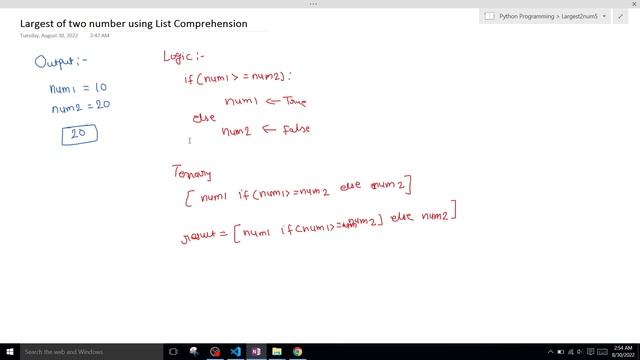 Python Programming > Largest2num5
Largest of two number using List Comprehension
Tuesday, August 30, 2022 2:47 AM
Output:-
num1 = 10
num2 = 20
20
Logic:-
if (num1 > = num2):
num1 ← True
else
num2 ← False
Ternary
[ num1 if (num1>=num2 else num2]
result = [num1 if (num1>=num2) else num2]
Search the web and Windows
2:54 AM
8/30/2022